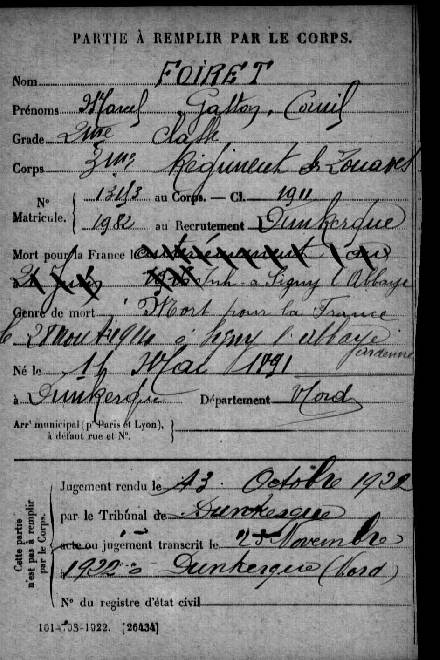 PARTIE À REMPLIR PAR LE CORPS.
Nom FOIRET
Prénoms Marcel Gaston Cornil
Grade 2me Classe
Corps 3me Régiment de Zouaves
N° Matricule. { au Corps. — Cl. 1911
1982 au Recrutement Dunkerque
Mort pour la France le
à Signy l'Abbaye
Genre de mort Mort pour la France
le à Signy l'abbaye
Ardennes
Né le Mai 1891
à Dunkerque Département Nord
Arrt municipal (pr Paris et Lyon), à défaut rue et N°. }
Cette partie n'est pas à remplir par le Corps.
Jugement rendu le 13 Octobre 1922
par le Tribunal de Dunkerque
acte ou jugement transcrit le 25 Novembre
1922 à Dunkerque (Nord)
N° du registre d'état civil
101-708-1922. [26434]